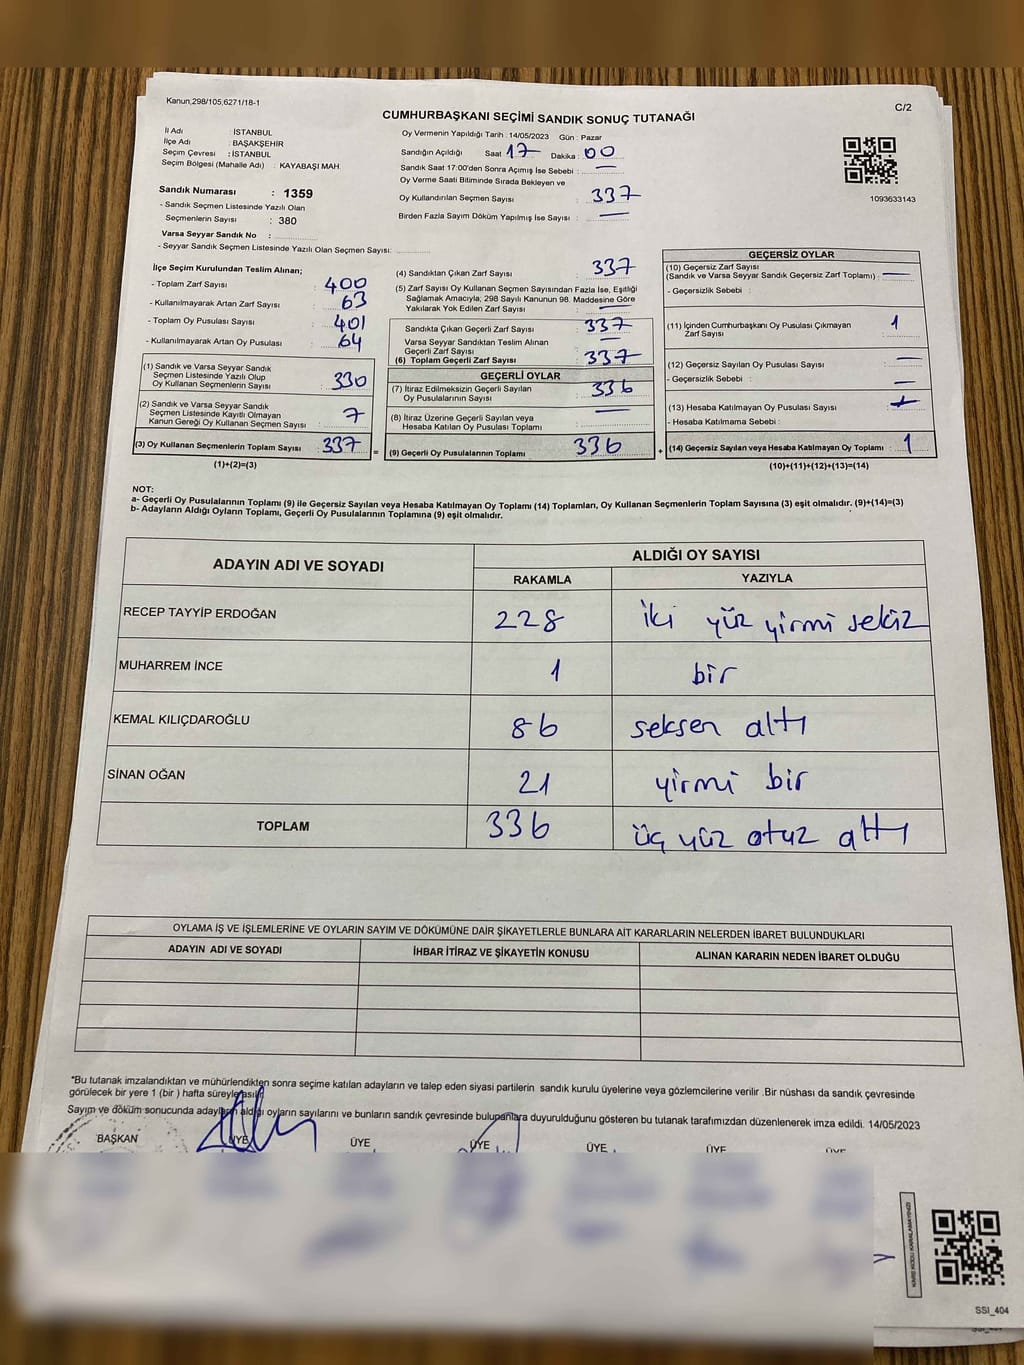 Kanun;298/105,6271/18-1
C/2
CUMHURBAŞKANI SEÇİMİ SANDIK SONUÇ TUTANAĞI
İl Adı : İSTANBUL
İlçe Adı : BAŞAKŞEHİR
Seçim Çevresi : İSTANBUL
Seçim Bölgesi (Mahalle Adı) : KAYABAŞI MAH.
Sandık Numarası : 1359
- Sandık Seçmen Listesinde Yazılı Olan
Seçmenlerin Sayısı : 380
Varsa Seyyar Sandık No :
- Seyyar Sandık Seçmen Listesinde Yazılı Olan Seçmen Sayısı:
Oy Vermenin Yapıldığı Tarih : 14/05/2023 Gün : Pazar
Sandığın Açıldığı Saat 17 Dakika : 00
Sandık Saat 17:00'den Sonra Açımış İse Sebebi : —
Oy Verme Saati Bitiminde Sırada Bekleyen ve
Oy Kullandırılan Seçmen Sayısı : 337
Birden Fazla Sayım Döküm Yapılmış İse Sayısı : —
1093633143
İlçe Seçim Kurulundan Teslim Alınan;
- Toplam Zarf Sayısı : 400
- Kullanılmayarak Artan Zarf Sayısı : 63
- Toplam Oy Pusulası Sayısı : 401
- Kullanılmayarak Artan Oy Pusulası : 64
(1) Sandık ve Varsa Seyyar Sandık
Seçmen Listesinde Yazılı Olup
Oy Kullanan Seçmenlerin Sayısı : 330
(2) Sandık ve Varsa Seyyar Sandık
Seçmen Listesinde Kayıtlı Olmayan
Kanun Gereği Oy Kullanan Seçmen Sayısı : 7
(3) Oy Kullanan Seçmenlerin Toplam Sayısı : 337
(1)+(2)=(3)
(4) Sandıktan Çıkan Zarf Sayısı : 337
(5) Zarf Sayısı Oy Kullanan Seçmen Sayısından Fazla İse, Eşitliği
Sağlamak Amacıyla; 298 Sayılı Kanunun 98. Maddesine Göre
Yakılarak Yok Edilen Zarf Sayısı : —
Sandıkta Çıkan Geçerli Zarf Sayısı : 337
Varsa Seyyar Sandıktan Teslim Alınan
Geçerli Zarf Sayısı : —
(6) Toplam Geçerli Zarf Sayısı : 337
GEÇERLİ OYLAR
(7) İtiraz Edilmeksizin Geçerli Sayılan
Oy Pusulalarının Sayısı : 336
(8) İtiraz Üzerine Geçerli Sayılan veya
Hesaba Katılan Oy Pusulası Toplamı : —
= (9) Geçerli Oy Pusulalarının Toplamı : 336
GEÇERSİZ OYLAR
(10) Geçersiz Zarf Sayısı
(Sandık ve Varsa Seyyar Sandık Geçersiz Zarf Toplamı) : —
- Geçersizlik Sebebi :
(11) İçinden Cumhurbaşkanı Oy Pusulası Çıkmayan
Zarf Sayısı : 1
(12) Geçersiz Sayılan Oy Pusulası Sayısı : —
- Geçersizlik Sebebi : —
(13) Hesaba Katılmayan Oy Pusulası Sayısı :
- Hesaba Katılmama Sebebi :
+ (14) Geçersiz Sayılan veya Hesaba Katılmayan Oy Toplamı : 1
(10)+(11)+(12)+(13)=(14)
NOT:
a- Geçerli Oy Pusulalarının Toplamı (9) ile Geçersiz Sayılan veya Hesaba Katılmayan Oy Toplamı (14) Toplamları, Oy Kullanan Seçmenlerin Toplam Sayısına (3) eşit olmalıdır. (9)+(14)=(3)
b- Adayların Aldığı Oyların Toplamı, Geçerli Oy Pusulalarının Toplamına (9) eşit olmalıdır.
ADAYIN ADI VE SOYADI ALDIĞI OY SAYISI
RAKAMLA YAZIYLA
RECEP TAYYİP ERDOĞAN 228 iki yüz yirmi sekiz
MUHARREM İNCE 1 bir
KEMAL KILIÇDAROĞLU 86 seksen altı
SİNAN OĞAN 21 yirmi bir
TOPLAM 336 üç yüz otuz altı
OYLAMA İŞ VE İŞLEMLERİNE VE OYLARIN SAYIM VE DÖKÜMÜNE DAİR ŞİKAYETLERLE BUNLARA AİT KARARLARIN NELERDEN İBARET BULUNDUKLARI
ADAYIN ADI VE SOYADI İHBAR İTİRAZ VE ŞİKAYETİN KONUSU ALINAN KARARIN NEDEN İBARET OLDUĞU
*Bu tutanak imzalandıktan ve mühürlendikten sonra seçime katılan adayların ve talep eden siyasi partilerin sandık kurulu üyelerine veya gözlemcilerine verilir .Bir nüshası da sandık çevresinde
görülecek bir yere 1 (bir ) hafta süreyle asılır.
Sayım ve döküm sonucunda adayların aldığı oyların sayılarını ve bunların sandık çevresinde bulunanlara duyurulduğunu gösteren bu tutanak tarafımızdan düzenlenerek imza edildi. 14/05/2023
BAŞKAN ÜYE ÜYE ÜYE ÜYE ÜYE ÜYE
KARE KODU KARALAMAYINIZ!
SSI_404